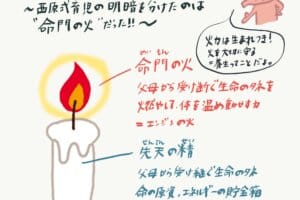 〜西原式育児の明暗を分けたのは
"命門の火"だった!!〜
火力は生まれつき!
火を大切に守る
=養生ってことだよ。
めいもん
命門の火
父母から受け継ぐ生命のタネを
燃やして、体を温め動かす力
=エンジンの火
せんてん せい
先天の精
父母から受け継ぐ生命のタネ
命の原資、エネルギーの貯金箱